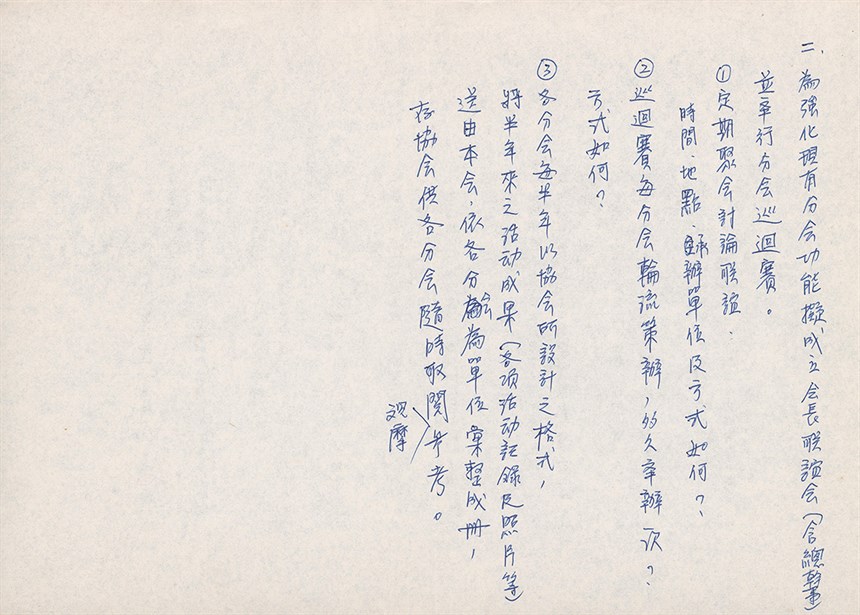 二、為強化現有分会功能擬成立会長联誼会(含總幹事)
並举行分会巡迴賽。
①定期聚会討論联誼:
時間、地點、辦單位及方式如何?
②巡迴賽每分会輪流策辦,多久举辦一次?
方式如何?
③各分会每半年以協会所設計之格式,
將半年來之活动成果(各項活动記錄及照片等)
送由本会,依各分会為單位彙整成冊,
存協会供各分会隨時取閱参考。
观摩